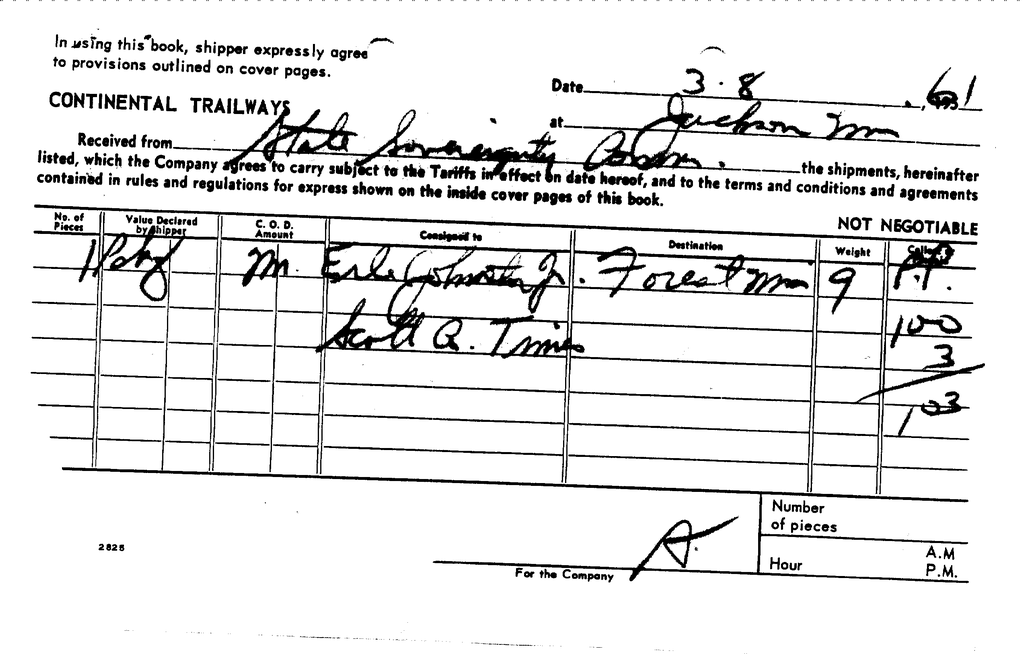 In using this book, shipper expressly agree
to provisions outlined on cover pages.
Date 3 - 8 , 61
CONTINENTAL TRAILWAYS
at Jackson Miss
Received from State Sovereignty Comm. the shipments, hereinafter
listed, which the Company agrees to carry subject to the Tariffs in effect on date hereof, and to the terms and conditions and agreements
contained in rules and regulations for express shown on the inside cover pages of this book.
NOT NEGOTIABLE
No. of Pieces Value Declared by Shipper C. O. D. Amount Consigned to Destination Weight Collect
1 Pkg M. Erle Johnston Jr. Forest Miss 9 P.P.
100
Scott Co. Times
3
1 03
Number
of pieces
A.
2825
A.M
Hour P.M.
For the Company